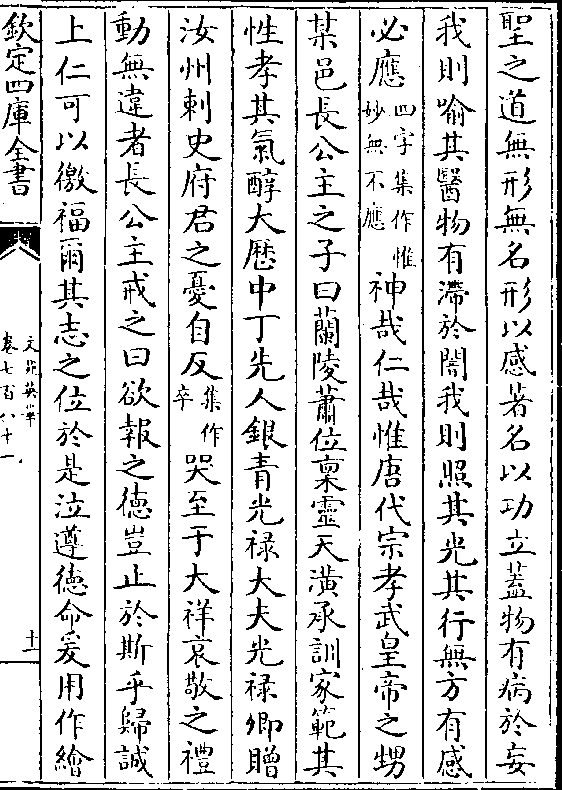 聖之道無形無名形以感著名以功立蓋物有病於妄
我則喻其醫物有滯於闇我則照其光其行無方有感
必應四字集作惟妙無不應神哉仁哉惟唐代宗孝武皇帝之甥
某邑長公主之子曰蘭陵蕭位稟靈天潢承訓家範其
性孝其氣醇大歷中丁先人銀青光禄大夫光禄卿贈
汝州刺史府君之憂自反集作卒哭至于大祥哀敬之禮
動無違者長公主戒之曰欲報之德豈止於斯乎歸誠
上仁可以徼福爾其志之位於是泣遵德命爰用作繪
欽定四庫全書
文苑英華
卷七百八十一
十一